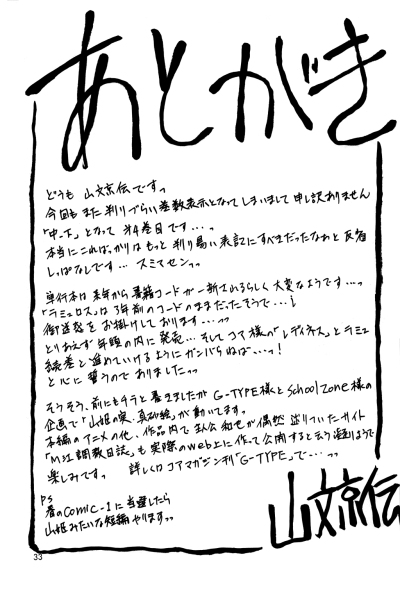 あとがき
どうも 山文京伝ですっ
今回もまた判りづらい巻数表示となってしまいまして申し訳ありません
「中‐下」となって 才4巻目です…っ
本当にこればっかりはもっと判り易い表記にすべきだったなあと反省
しっぱなしです… スミマセンッっ
単行本は来年から書籍コードが一新されるらしく大変なようです…っ
「ラミュロス」は 年前のコードのままだったそうで…
御迷惑をお掛けしております…っっ
とりあえず年頭の内に発売… そしてコア様の「レディネス」とラミュ
続巻と進めていけるようにガンバらねば…っ!
と心に誓うのでありましたっっ
そうそう、前にもチラと書きましたが G-TYPE様とSchoolzone様の
企画で「山姫の実、真砂絵」が動いてます。
本編のアニメの他、作品内で主人公和也が偶然辿りついたサイト
「M江調教日誌」も実際のweb上に作って公開すると云う凝りようで
楽しみです。 詳しくはコアマガジン刊「G-TYPE」で…っっ
PS
春のComic-1に当選したら
山姫みたいな短編やりますっっ
山文京伝
33